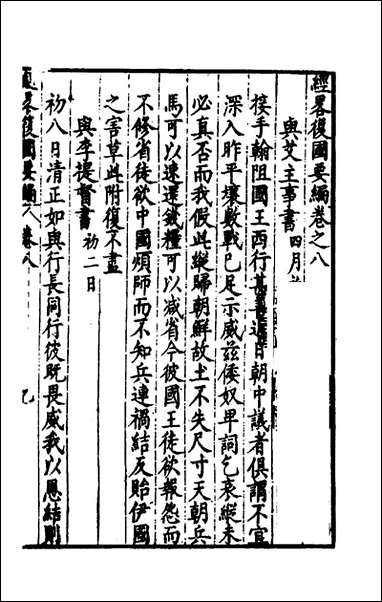 經畧復國要編卷之八
與艾主事書四月
接手翰阻國王西行甚善近日朝中議者俱謂不宜
深入昨平壤數戰已足示威茲倭奴卑詞乞哀縱未
必真否而我假此縱歸朝鮮故土不失尺寸天朝兵
馬可以速還錢糧可以減省今彼國王徒欲報怨而
不修省徒欲中國煩師而不知兵連禍結反貽伊國
之害草此附復不盡
與李提督書初二日
初八日清正如與行長同行彼既畏威我以恩結則
復國要編 卷八